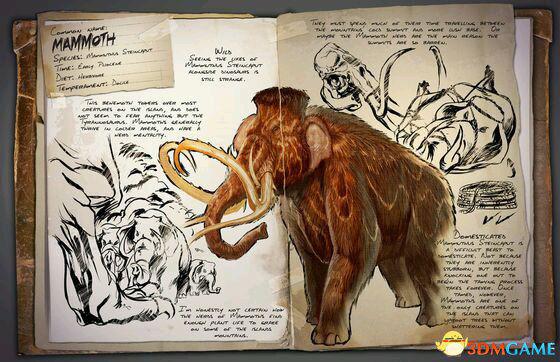 Common Name:
Mammoth
Species: Mammuthus Steincaput
Time: Early Pliocene
Diet: Herbivore
Temperament: Docile
This behemoth towers over most
creatures on the island, and does
not seem to fear anything but the
Tyrannosaurus. Mammoths generally
thrive in colder areas, and have a
herd mentality.
Wild
Seeing the likes of
Mammuthus Steincaput
alongside dinosaurs is
still strange.
I'm honestly not certain how
the herds of Mammoths find
enough plant life to graze
on some of the islands
mountains.
They must spend much of their time travelling between
the mountains cold summit and more lush base. Or
maybe the Mammoth herds are the main reason the
summits are so barren.
Domesticated
Mammuthus Steincaput is
a difficult beast to
domesticate. Not because
they are inherently
stubborn, but because
knocking one out to
begin the taming process
takes forever. Once
tamed, however,
Mammoths are one of
the only creatures on
the island that can
uproot trees without
shattering them.
3DMGAME